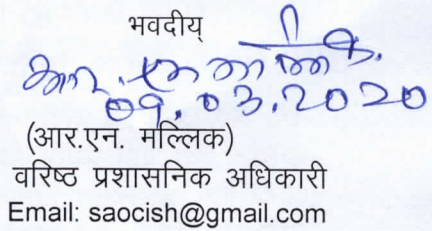 भवदीय्
आर. एन. मल्लिक
09.03.2020
(आर.एन. मल्लिक)
वरिष्ठ प्रशासनिक अधिकारी
Email: saocish@gmail.com